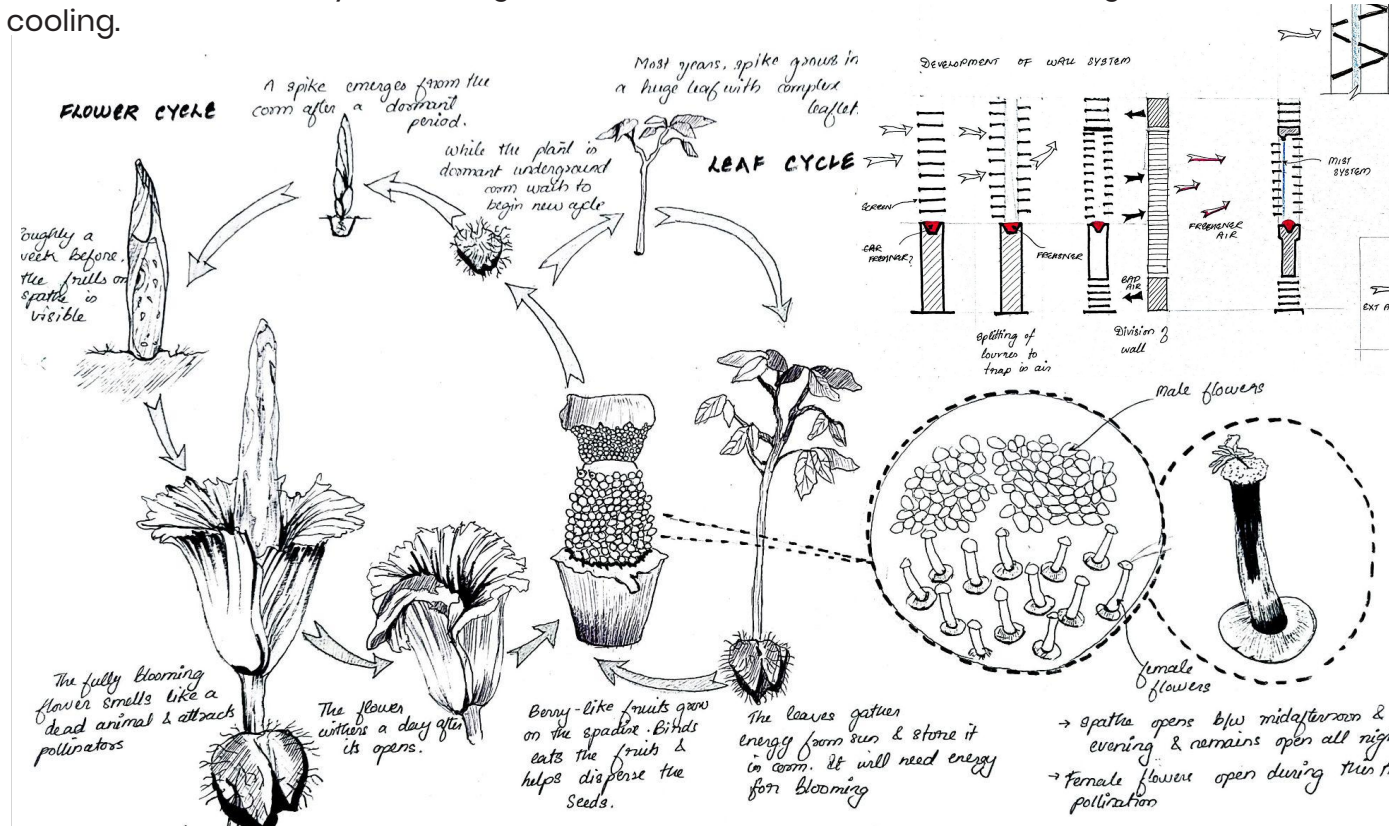 cooling.
FLOWER CYCLE
A spike emerges from the
corm after a dormant
period.
Most years, spike grows in
a huge leaf with complex
leaflet.
While the plant is
dormant underground
corm waits to
begin new cycle
LEAF CYCLE
oughly a
week before,
the frills on
spathe is
visible
The fully blooming
flower smells like a
dead animal & attracts
pollinators
The flower
withers a day after
its opens.
Berry-like fruits grow
on the spadix. Birds
eats the fruits &
helps disperse the
seeds.
The leaves gather
energy from sun & store it
in corm. It will need energy
for blooming
DEVELOPMENT OF WALL SYSTEM
SCREEN
CAR
FRESHNER?
FRESHNER
Splitting of
louvres to
trap in air
BAD
AIR
Division of
wall
FRESHENER
AIR
MIST
SYSTEM
EXT A
Male flowers
female
flowers
→ Spathe opens b/w midafternoon &
evening & remains open all nig
→ Female flowers open during this
pollination